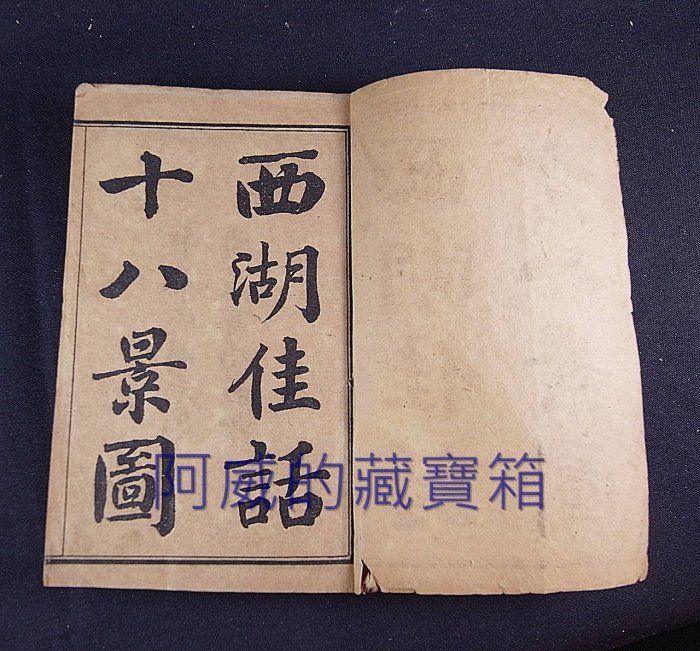 西湖佳話
十八景圖
阿威的藏寶箱